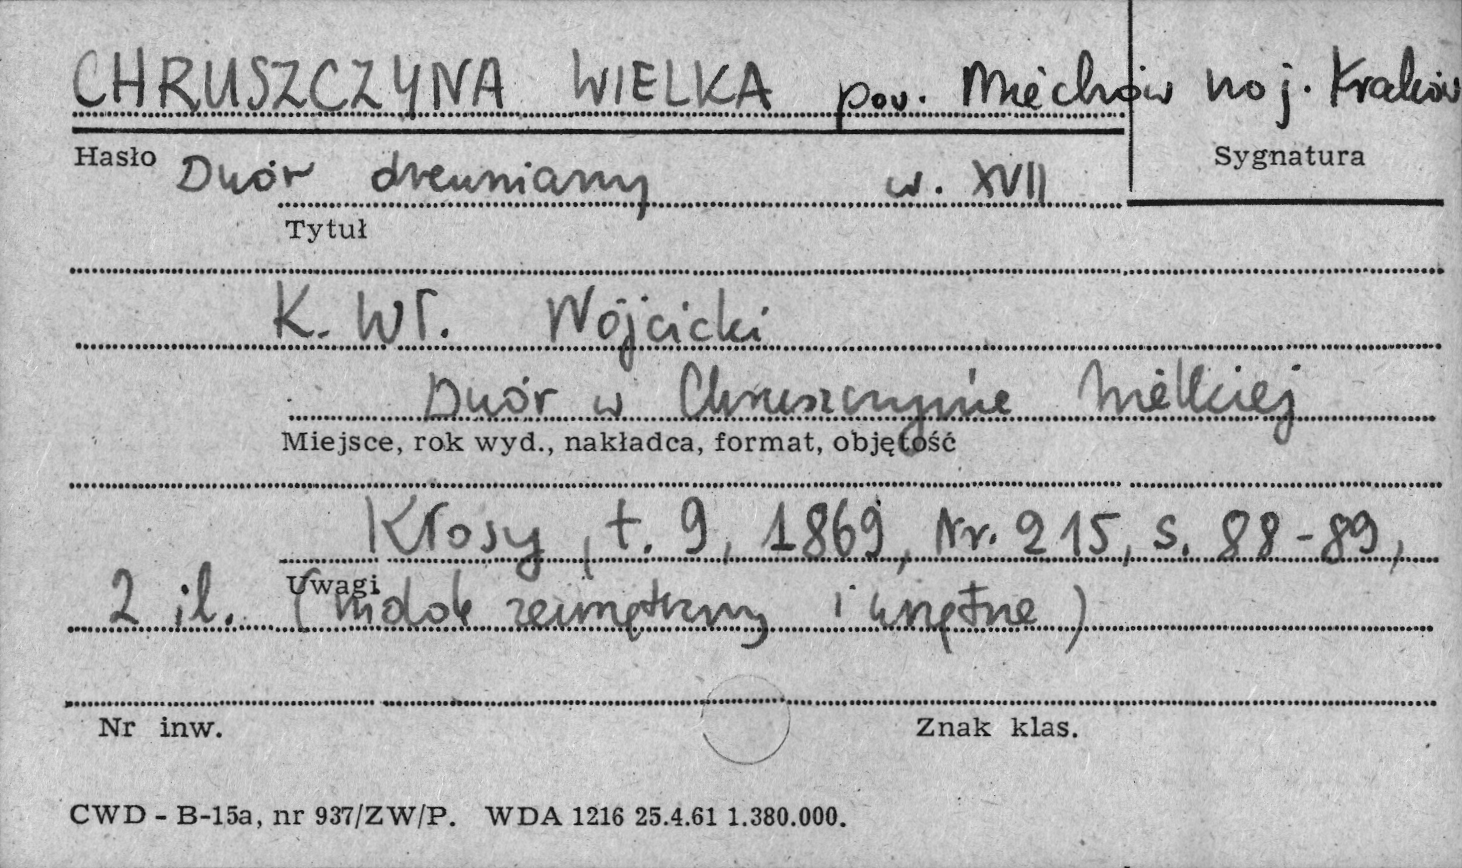 CHRUSZCZYNA WIELKA pow. Miechów woj. Kraków
Hasło
Sygnatura
Dwór drewniany w. XVII
Tytuł
K. Wł. Wójcicki
Dwór w Chruszczynie Wielkiej
Miejsce, rok wyd., nakładca, format, objętość
Kłosy, t. 9, 1869, Nr. 215, s. 88-89,
Uwagi
2 il. (widok zewnętrzny i wnętrze)
Nr inw.
Znak klas.
CWD - B-15a, nr 937/ZW/P. WDA 1216 25.4.61 1.380.000.